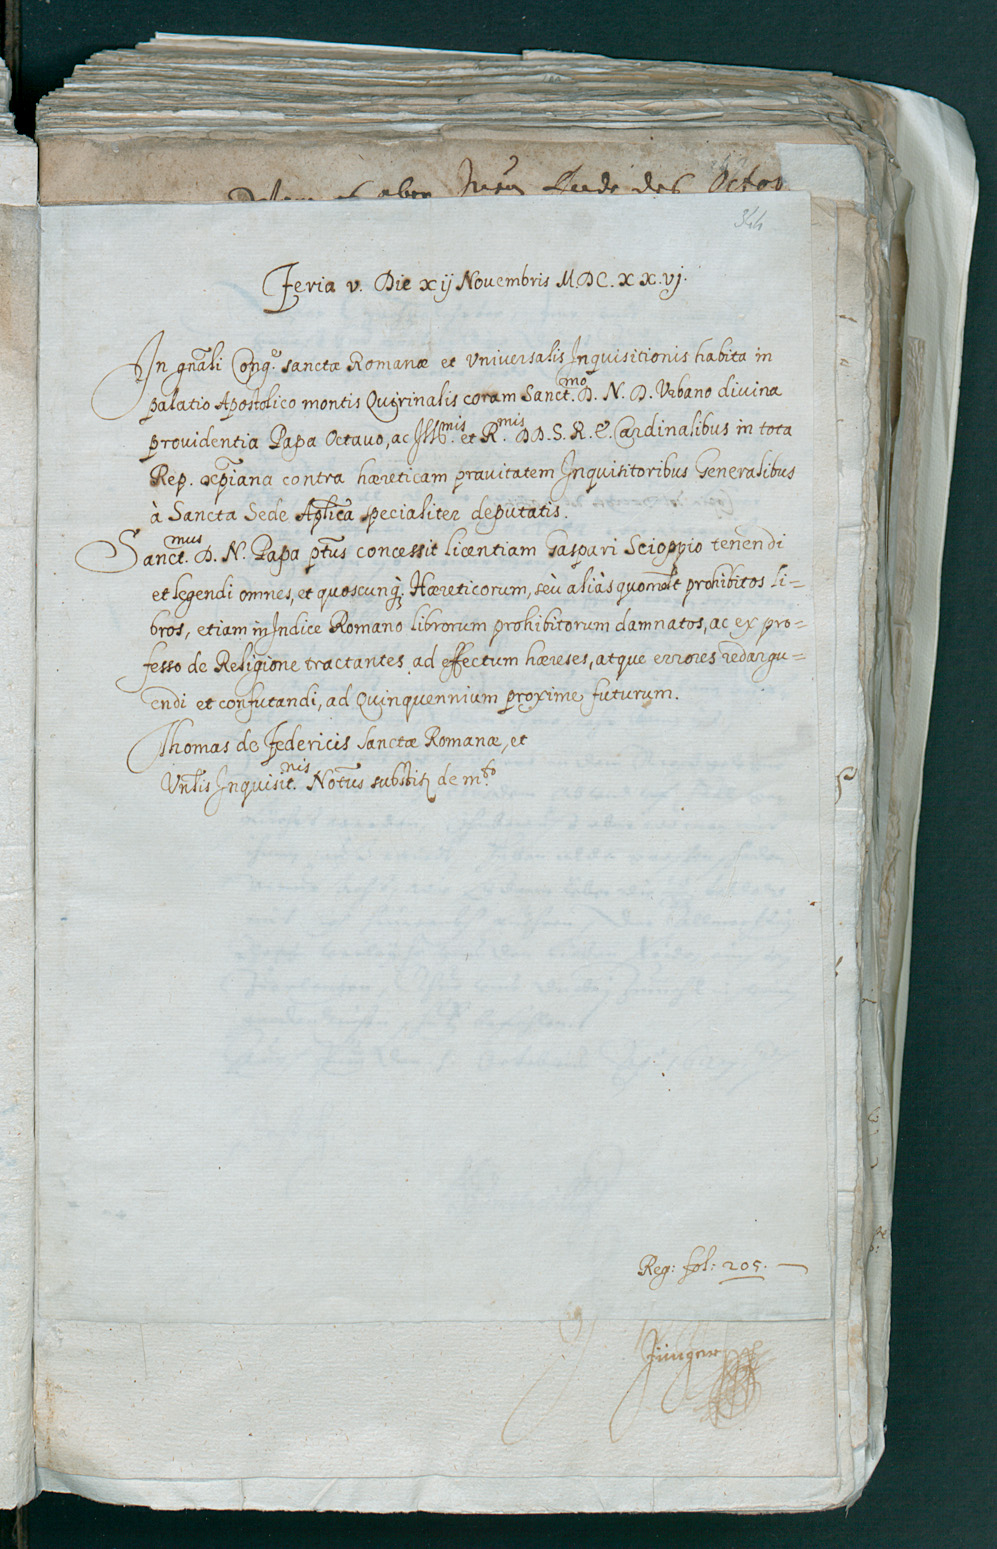 aber Ende des Octob
344
Feria v. Die xij Nouembris M.DC.XX.vj.
In gn̄ali Cong.ⁿᵉ sanctæ Romanæ et vniuersalis Inquisitionis habita in
palatio Apostolico montis Quirinalis coram Sanct.ᵐᵒ D. N. D. Vrbano diuina
prouidentia Papa Octauo, ac Ill.ᵐⁱˢ et R.ᵐⁱˢ DD. S. R. E. Cardinalibus in tota
Rep. xp̄iana contra hæreticam prauitatem Inquisitoribus Generalibus
à Sancta Sede Ap̄lica specialiter deputatis.
Sanct.ᵐᵘˢ D. N. Papa p̄tus concessit licentiam Gaspari Scioppio tenendi
et legendi omnes, et quoscunq; Hæreticorum, seù aliàs quomol̄t prohibitos li=
bros, etiam in Indice Romano librorum prohibitorum damnatos, ac ex pro=
fesso de Religione tractantes ad effectum hæreses, atque errores redargu=
endi et confutandi, ad Quinquennium proxime futurum.
Thomas de Federicis Sanctæ Romanæ, et
Vn̄lis Inquisit.ⁿⁱˢ Not̄us substit. de m.ᵗᵒ
Reg: fol: 205.